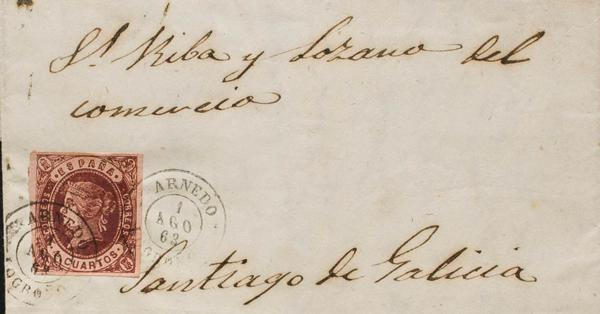 Sr Riba y Lozano del
comercio
ESPAÑA
CORREOS
CUARTOS
ARNEDO
1
AGO
63
ARNEDO
AGO
63
Santiago de Galicia